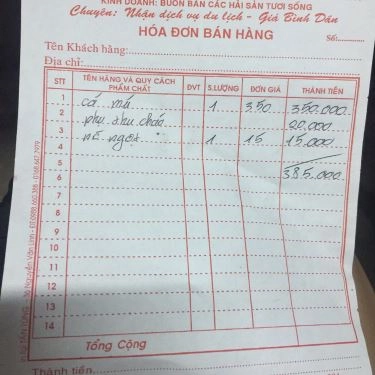 KINH DOANH: BUÔN BÁN CÁC HẢI SẢN TƯƠI SỐNG
Chuyên: Nhận dịch vụ du lịch - Giá Bình Dân
HÓA ĐƠN BÁN HÀNG
Số:
Tên Khách hàng:
Địa chỉ:
STT TÊN HÀNG VÀ QUY CÁCH PHẨM CHẤT ĐVT S.LƯỢNG ĐƠN GIÁ THÀNH TIỀN
1 cá mú 1 350 350.000
2 phụ thu cháo 20.000
3 nc ngọt 1 15 15.000
4
5
6 385.000
7
8
9
10
11
12
13
14
Tổng Cộng
Thành tiền